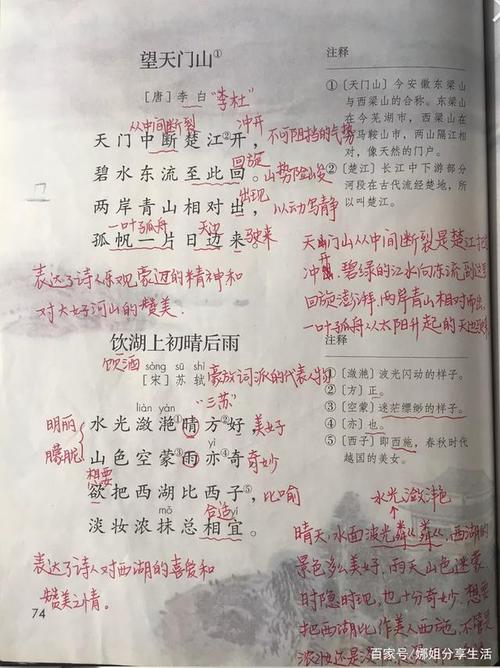 望天门山①
[唐] 李 白 "李杜"
从中间断裂 冲开
天门中断楚江②开，不可阻挡的气势
回旋
碧水东流至此回。山势险峻
出现
两岸青山相对出，以动写静
一叶孤舟 天边
孤帆一片日边来。驶来
表达了诗人乐观豪迈的精神和
对大好河山的赞美。
注释
①[天门山] 今安徽东梁山
与西梁山的合称。东梁山
在今芜湖市，西梁山在
马鞍山市，两山隔江相
对，像天然的门户。
②[楚江] 长江中下游部分
河段在古代流经楚地，所
以叫楚江。
天门山从中间断裂是楚江把它
冲开，碧绿的江水向东流到这里
回旋澎湃，两岸青山相对而出，
一叶孤舟从太阳升起的天边驶来
饮湖上初晴后雨
饮酒 sòng sū shì
[宋] 苏 轼 豪放词派的代表人物
"三苏"
liàn yàn
明丽 水光潋滟①晴方②好 美好
朦胧 山色空蒙③雨亦④奇 奇妙
想要
欲把西湖比西子⑤，比喻
mò 合适 yí
淡妆浓抹总相宜。
表达了诗人对西湖的喜爱和
赞美之情。
注释
①[潋滟] 波光闪动的样子。
②[方] 正。
③[空蒙] 迷茫缥缈的样子。
④[亦] 也。
⑤[西子] 即西施，春秋时代
越国的美女。
水光潋滟
晴天，水面波光粼粼，西湖的
景色多么美好，雨天山色迷蒙
时隐时现，也十分奇妙，想要
把西湖比作美人西施，不管是
74
百家号/娜姐分享生活